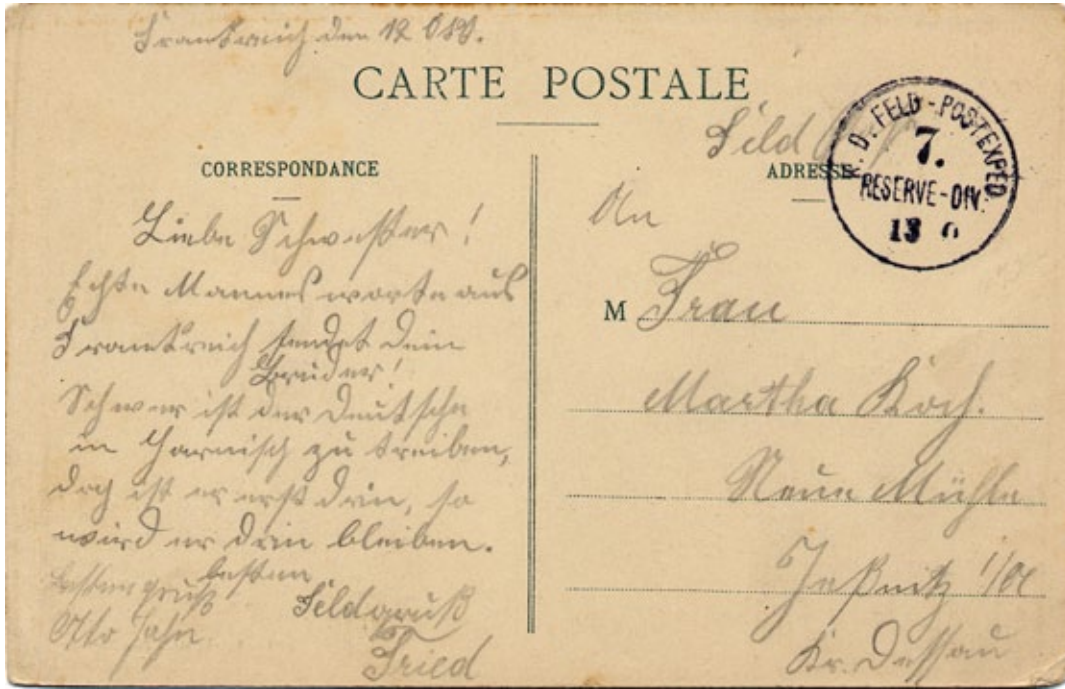 Frankreich den 12 Okt.
CARTE POSTALE
CORRESPONDANCE
Liebe Schwester!
Echte Mannesworte aus
Frankreich sendet Dein
Bruder!
Schwer ist der Deutsche
in Harnisch zu treiben,
doch ist er erst drin, so
wird er drin bleiben.
besten
Feldgruß
Fried
Besten Gruß
Otto Jahn
Feld
ADRESSE
K. D. FELD-POSTEXPED.
7.
RESERVE-DIV.
13
An
M Frau
Martha Koch.
Neue Mühle
Jeßnitz i/A
Kr. Dessau